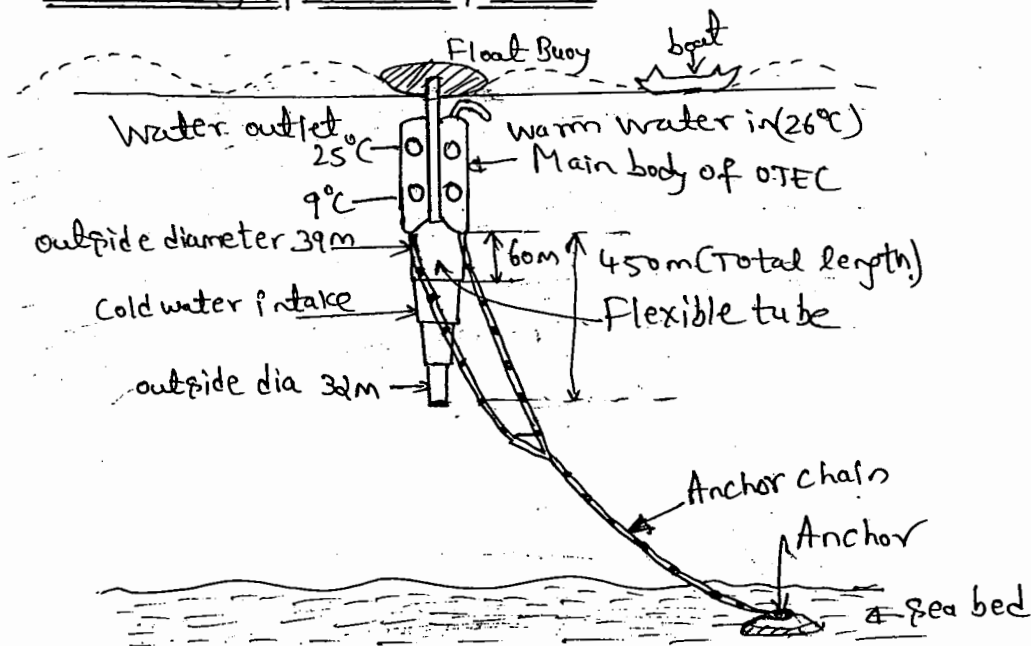 Float Buoy
boat
Water outlet
warm water in (26°C)
25°C
Main body of OTEC
9°C
outside diameter 39m
60m
450m (Total length)
Cold water intake
Flexible tube
outside dia 32m
Anchor chain
Anchor
sea bed